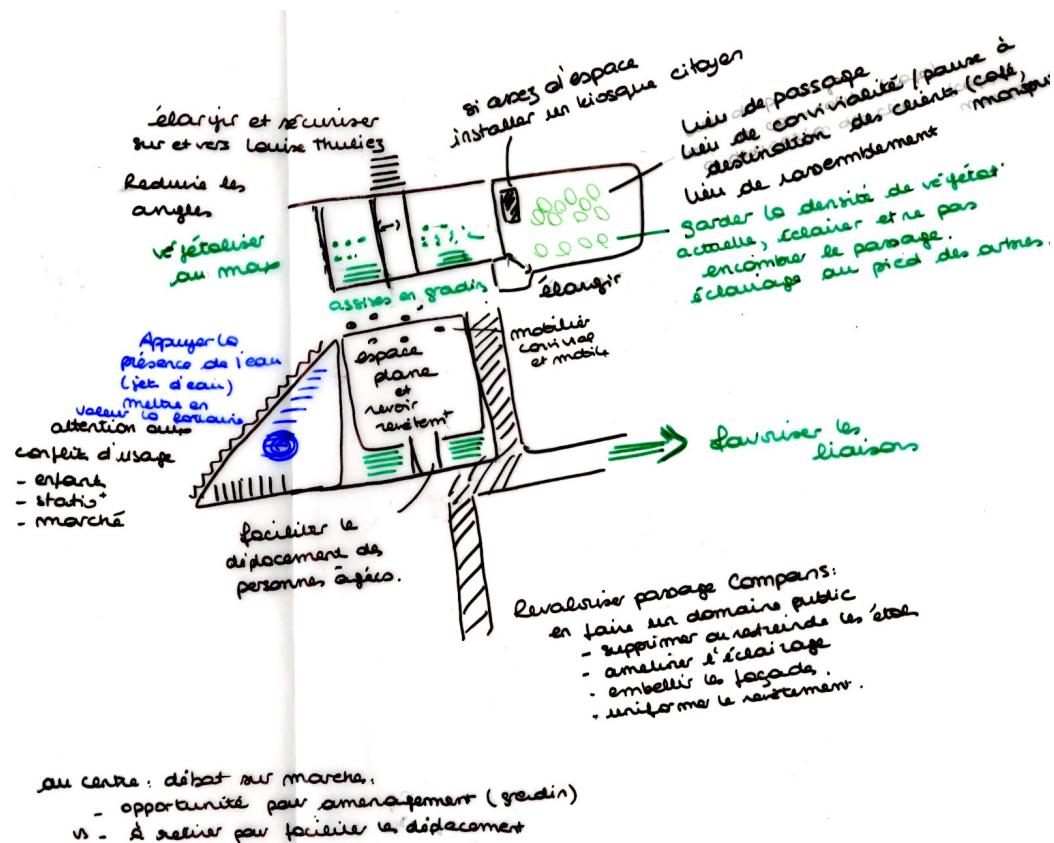 élargir et sécuriser
sur et vers Louise Thuliez
Réduire les
angles
végétaliser
au max
si assez d'espace
installer un kiosque citoyen
lieu de passage
lieu de convivialité / pause à
destination des clients (café,
lieu de rassemblement
garder la densité de végétat°
actuelle, éclairer et ne pas
encombrer le passage.
éclairage au pied des arbres.
élargir
assises en gradin
mobilier
convivial
et mobile
espace
plane
et
revoir
revêtem^t
Appuyer la
présence de l'eau
(jet d'eau)
mettre en
valeur la
attention aux
conflits d'usage
- enfants
- stati°
- marché
faciliter le
déplacement des
personnes âgées.
favoriser les
liaisons
Revaloriser passage Compans:
en faire un domaine public
- supprimer ou restreindre les étals
- améliorer l'éclairage
- embellir les façades.
- uniformer le revêtement.
au centre: débat sur marches:
- opportunité pour aménagement (gradin)
vs - à retirer pour faciliter les déplacement